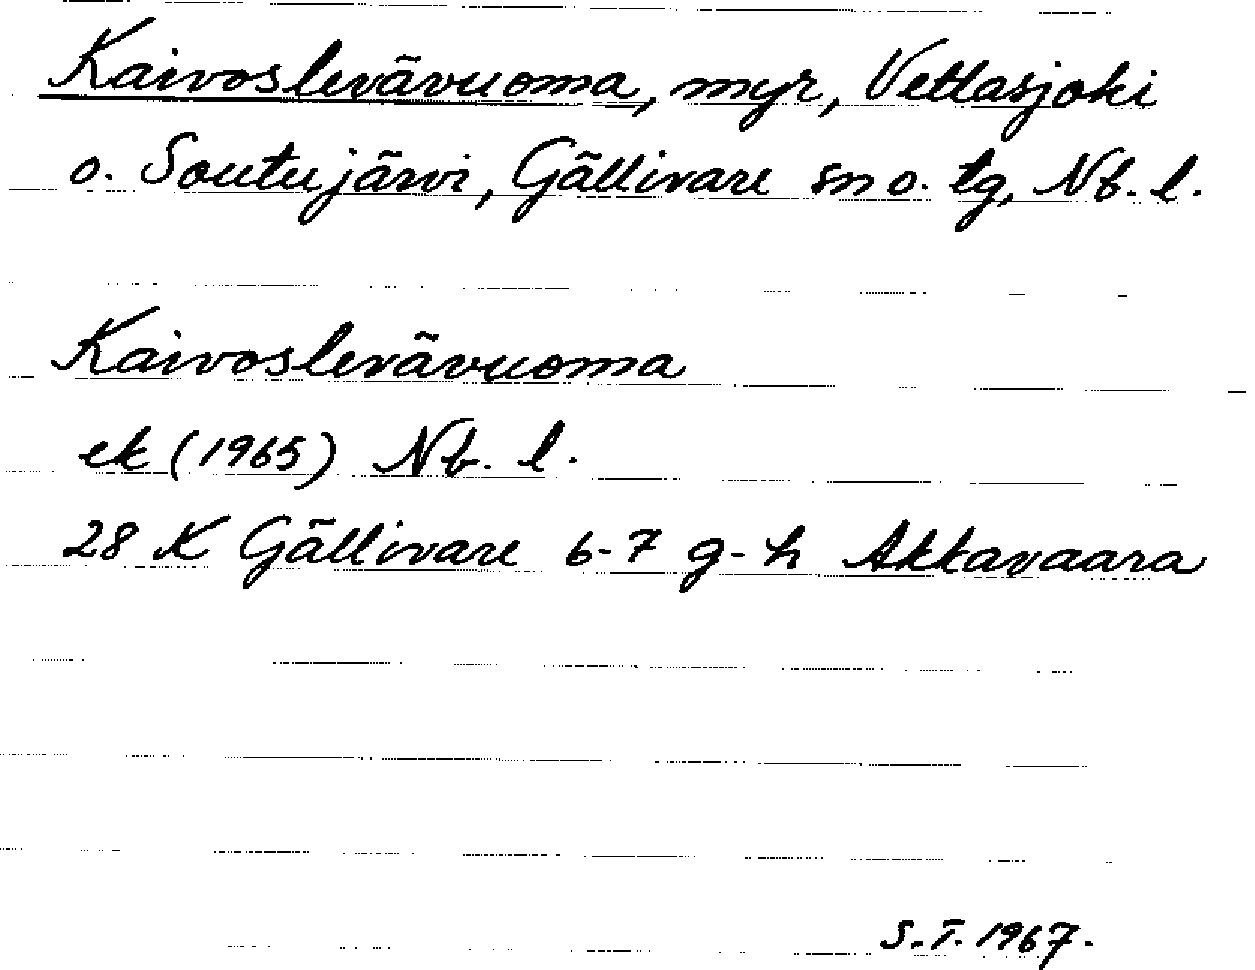 Kaivoslevävuoma, myr, Vettasjoki
o. Soutujärvi, Gällivare sn o. tg, Nb. l.
Kaivoslevävuoma
ek (1965) Nb. l.
28 K Gällivare 6-7 g-h Akkavaara
S.T. 1967.